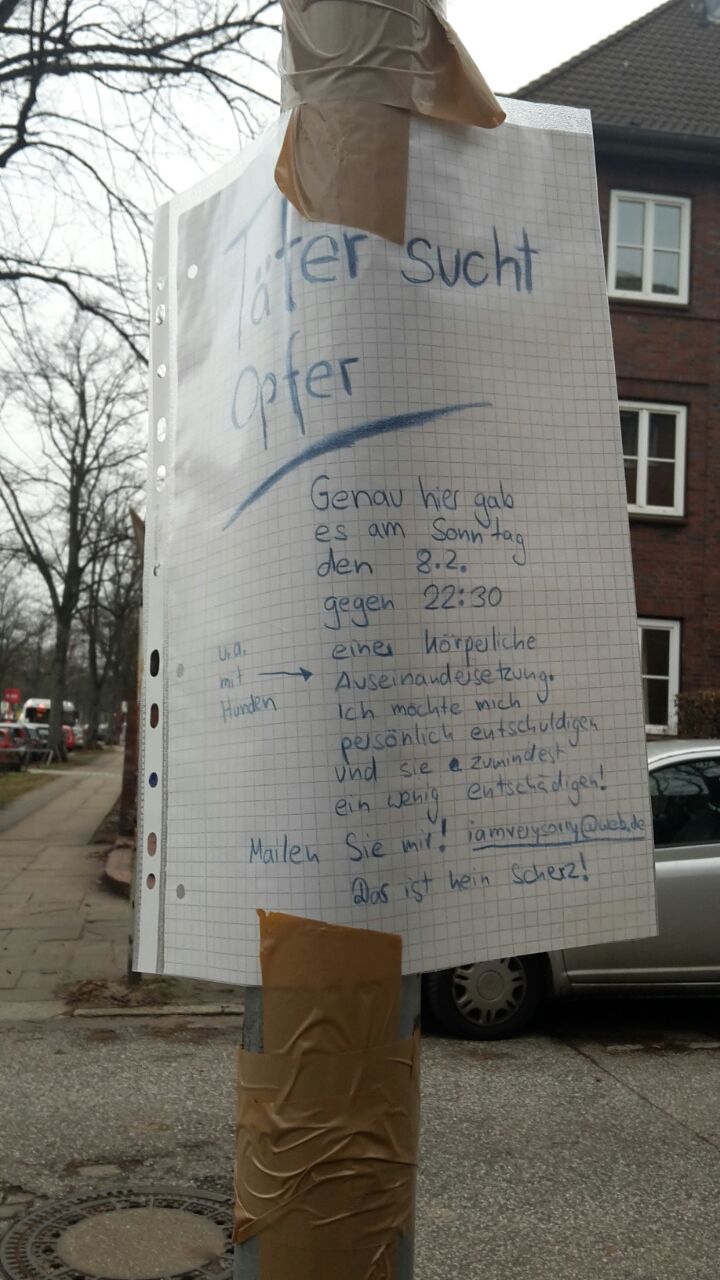 Täter sucht
Opfer
Genau hier gab
es am Sonntag
den 8.2.
gegen 22:30
eine körperliche
Auseinandersetzung.
u.a.
mit
Hunden
Ich möchte mich
persönlich entschuldigen
und sie zumindest
ein wenig entschädigen!
Mailen Sie mir! iamverysorry@web.de
Das ist kein Scherz!